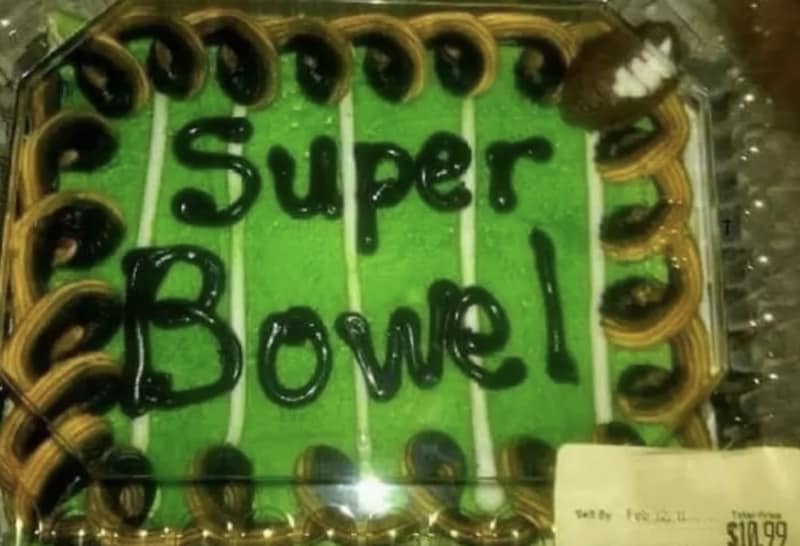 Super
Bowel
Sell By Feb 12, 11
Total Price
$10.99